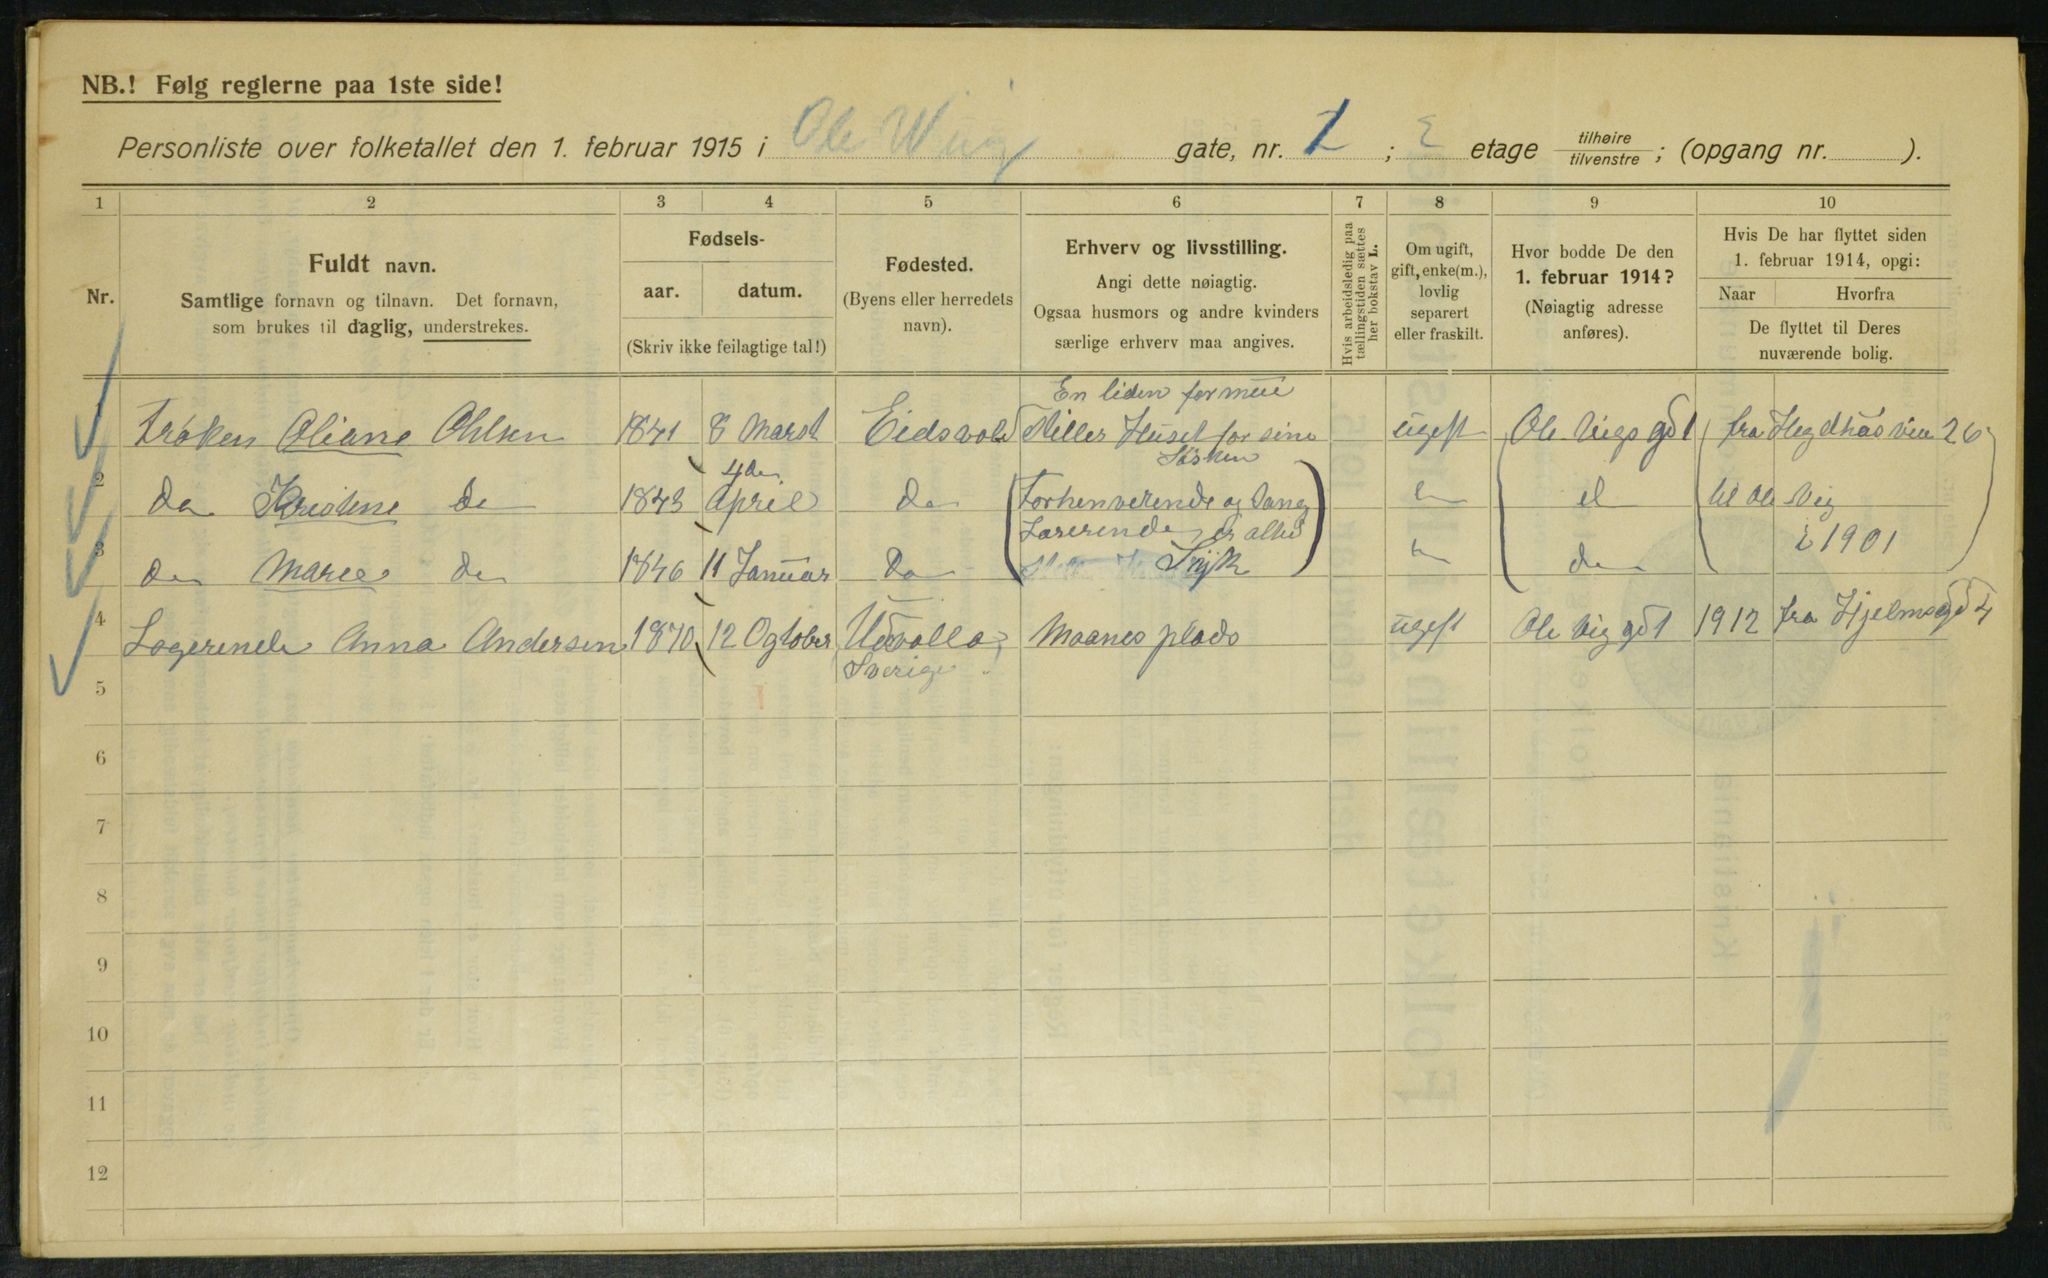 NB.! Følg reglerne paa 1ste side!
Personliste over folketallet den 1. februar 1915 i Ole Wiig gate, nr. 1 ; etage tilhøire tilvenstre ; (opgang nr. ).
1 2 3 4 5 6 7 8 9 10
Nr.
Fuldt navn.
Samtlige fornavn og tilnavn. Det fornavn,
som brukes til daglig, understrekes.
Fødsels-
aar. datum.
(Skriv ikke feilagtige tal!)
Fødested.
(Byens eller herredets
navn).
Erhverv og livsstilling.
Angi dette nøiagtig.
Ogsaa husmors og andre kvinders
særlige erhverv maa angives.
Hvis arbeidsledig paa
tællingstiden sættes
her bokstav L.
Om ugift,
gift, enke(m.),
lovlig
separert
eller fraskilt.
Hvor bodde De den
1. februar 1914?
(Nøiagtig adresse
anføres).
Hvis De har flyttet siden
1. februar 1914, opgi:
Naar Hvorfra
De flyttet til Deres
nuværende bolig.
En liden formue
1 Frøken Oliane Ohlsen 1841 8 Marst Eidsvold Stiller Huset for sine ugift Ole Vigs gd 1 fra Hegdhas vien 26
Søsken
4de
2 Do Kristine Do 1843 April Do Forhenverende og Sang til Ole Vig
Lærerende er altid
i 1901
3 Do Marie Do 1846 11 Januar Do Sijk Do
4 Logerende Anna Andersen 1870 12 Ogtober Udvalla Maanes plads ugift Ole Vig gd 1 1912 fra Hjelmsgd 4
Sverige
5
6
7
8
9
10
11
12